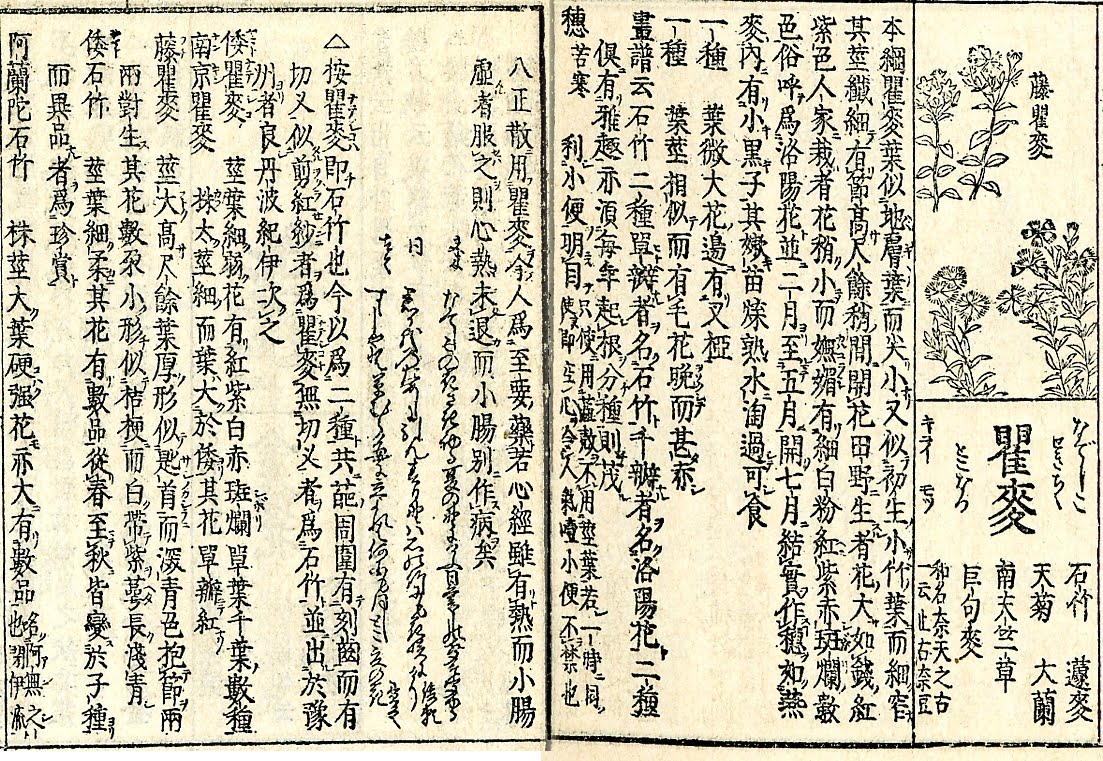 藤瞿麥
なでしこ
せきちく
とこなつ
瞿麥
キヨイ モツ
石竹 蘧麥
天菊 大蘭
南天竺草
巨句麥
和名奈天之古
一云止古奈豆
本綱瞿麥葉似地膚葉而尖小又似初生小竹葉而細窄
其莖纖細有節高尺餘稍間開花田野生者花大如錢紅
紫色人家栽者花稍小而嫵媚有細白粉紅紫赤斑爛數
色俗呼爲洛陽花並二月至五月開七月結實作穗如燕
麥內有小黑子其嫩苗煠熟水淘過可食
一種 葉微大花邊有叉椏
一種 葉莖相似而有毛花晚而甚赤
畫譜云石竹二種單瓣者名石竹千瓣者名洛陽花二種
俱有雅趣亦須每年起根分種則茂
穗 苦寒 利小便明目 只使用蕊殼不用莖葉若一時同
使即空心令人氣噎小便不禁也
八正散用瞿麥今人爲至要藥若心經雖有熱而小腸
虛者服之則心熱未退而小腸別作病矣
△按瞿麥即石竹也今以爲二種共葩周圍有刻齒而有
切叉似剪紅紗者爲瞿麥無切叉者爲石竹並出於豫
州者良丹波紀伊次之
倭瞿麥 莖葉細弱花有紅紫白赤斑爛單葉千葉數種
南京瞿麥 株太莖細而葉大於倭其花單瓣紅
藤瞿麥 莖大高尺餘葉厚形似匙首而深青色抱節兩
兩對生其花數朶小形似桔梗而白帶紫蕚長淺青
倭石竹 莖葉細柔其花有數品從春至秋皆變於子種
而異品者爲珍賞
阿蘭陀石竹 株莖大葉硬强花亦大有數品也